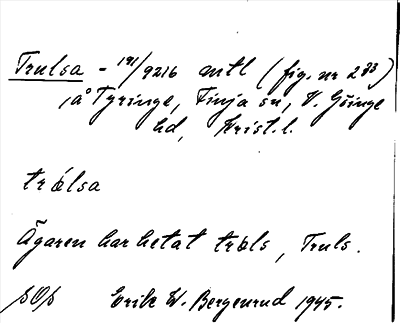 Trulsa - 191/9216 mtl (fig. nr 283)
i å Tyringe, Finja sn, V. Göinge
hd, Krist. l.
trólsa
Ägaren har hetat tróls, Truls.
sOs Erik W. Bergenrud 1945.